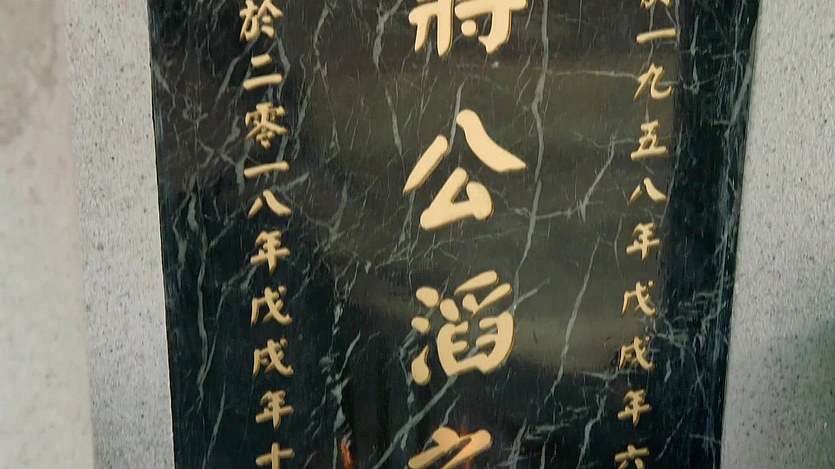 於一九五八年戊戌年六
蔣公滔之
於二零一八年戊戌年十